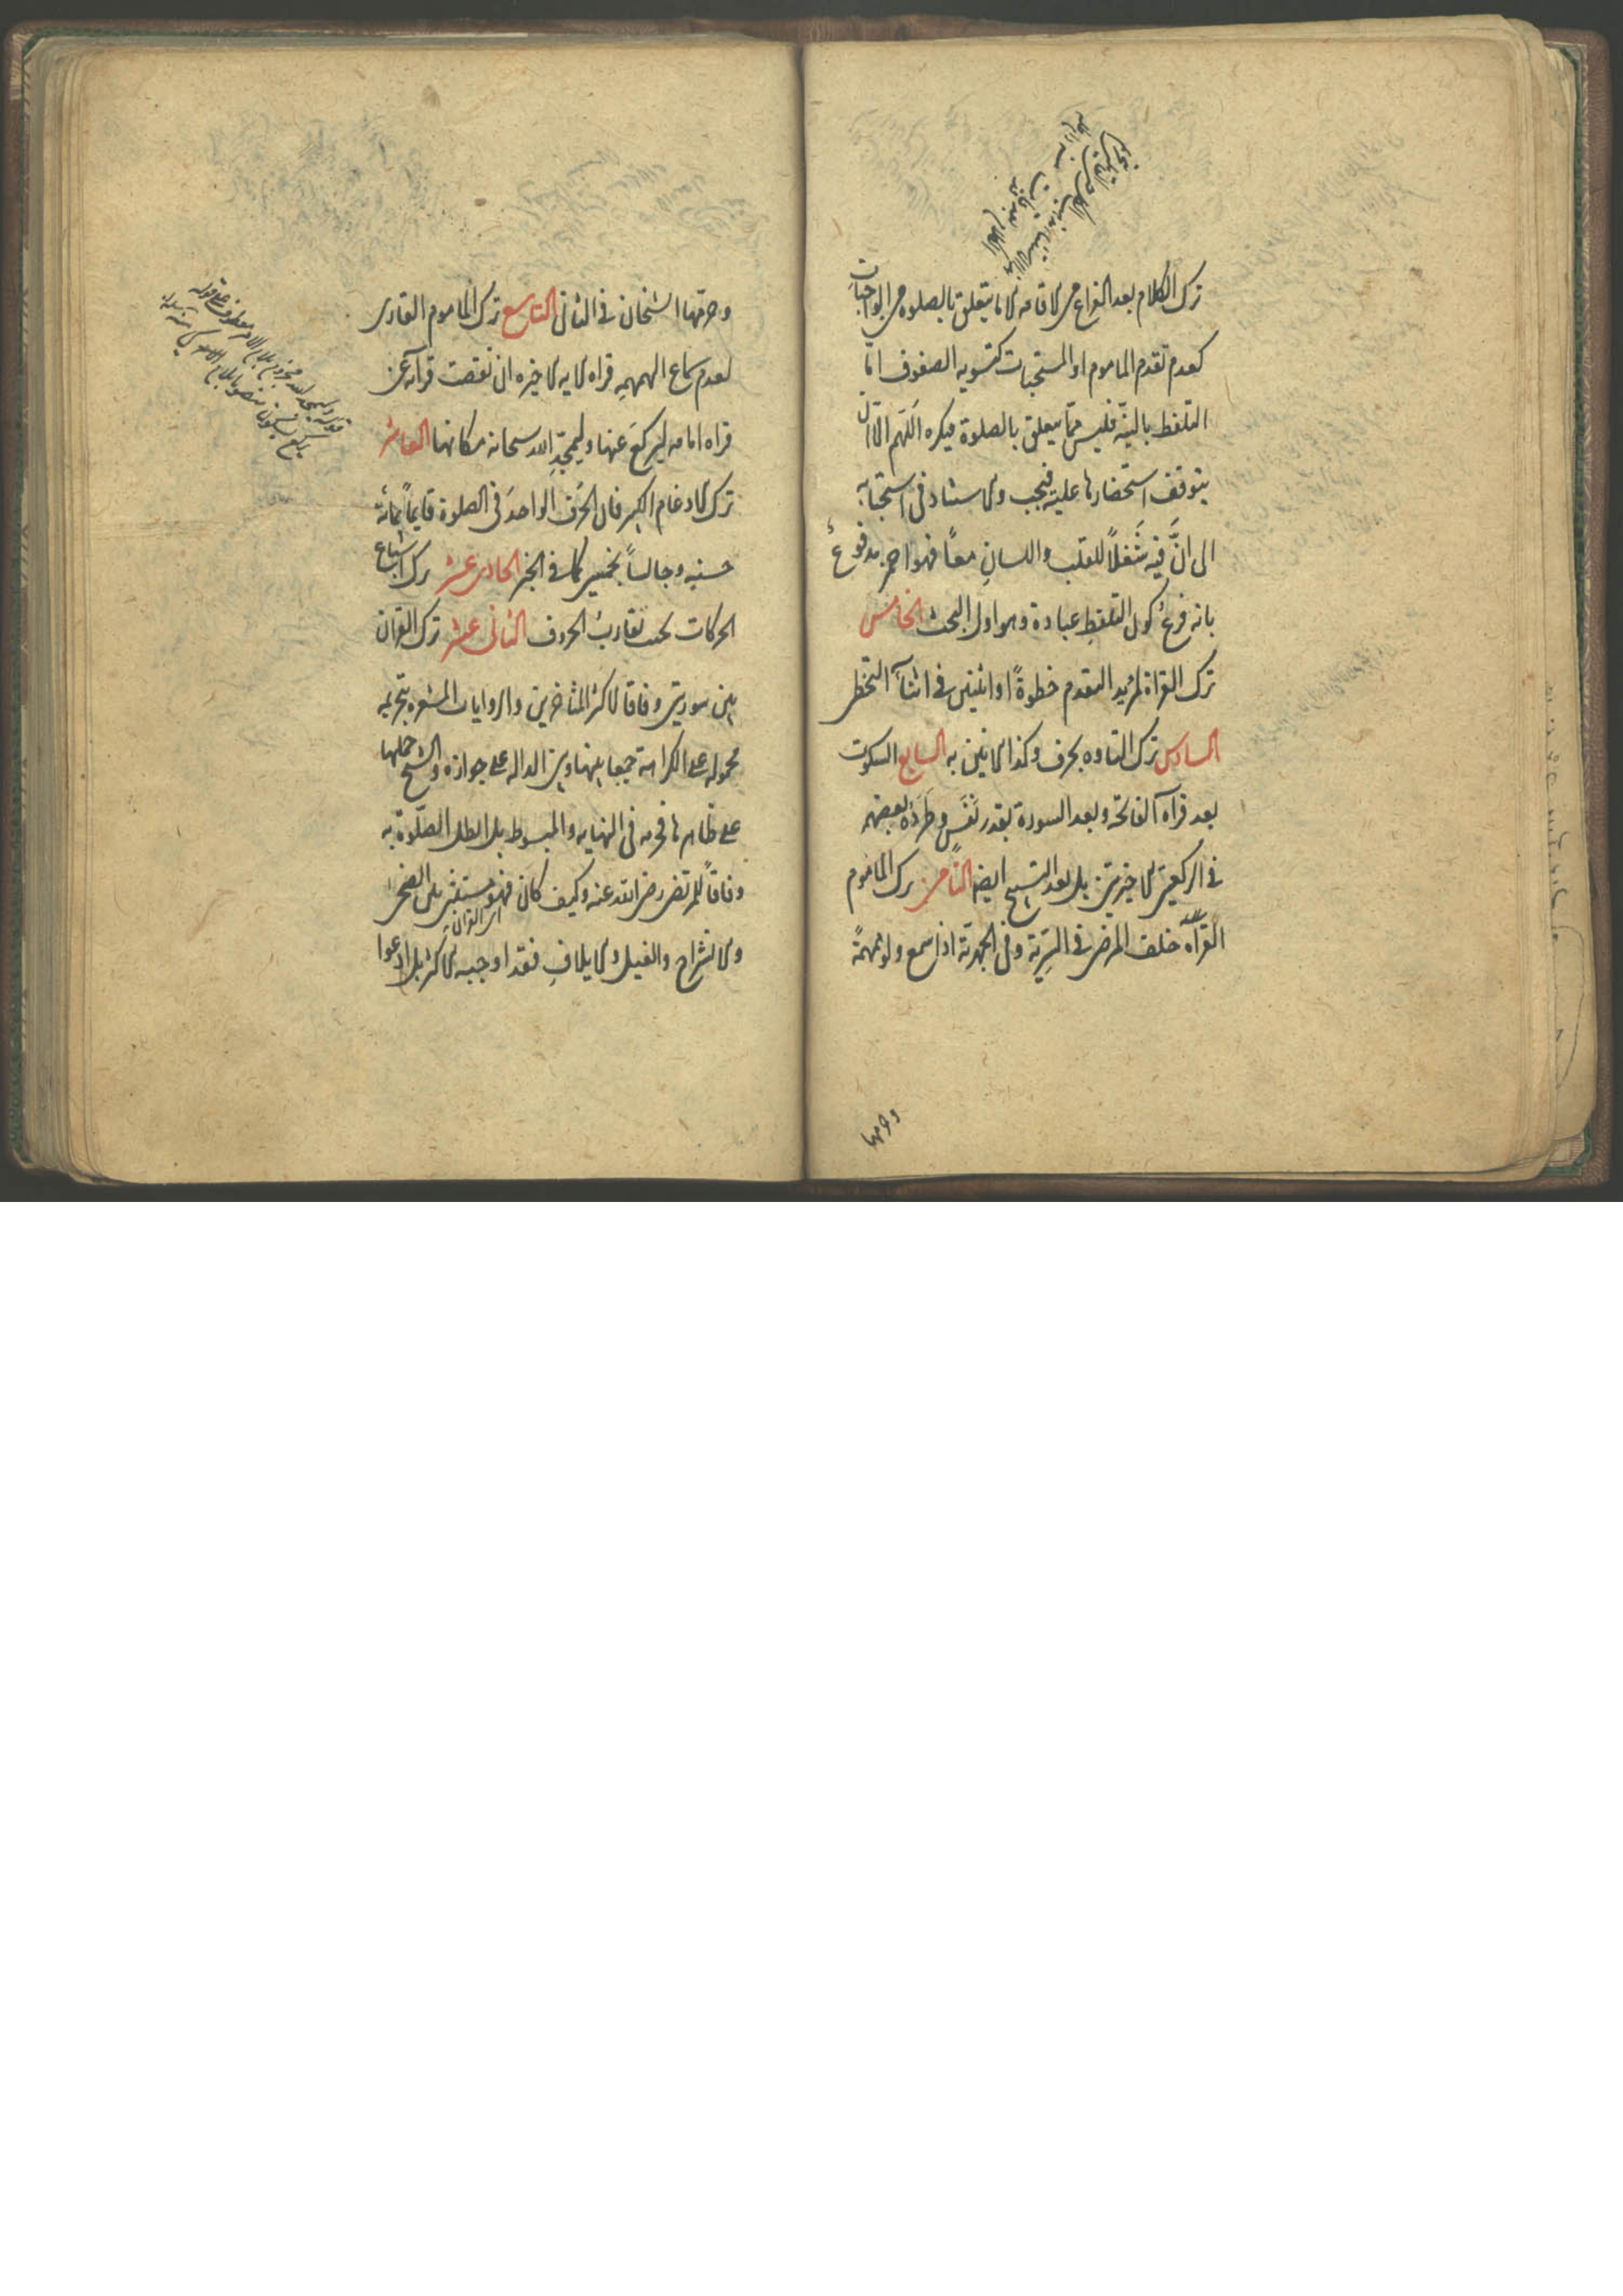 ترك الكلام بعد الفراغ من الاقامه الا ما يتعلق بالصلوة من الواجبات
كعدم تقدم الماموم او المستحبات كتسويه الصفوف امّا
التلفظ بالنيّة فليس ممّا يتعلق بالصلوة فيكره اللّهم الّا ان
يتوقف استحضارها عليه فيجب والاستناد في استحبابه
الى انّ فيه شَغلاً للقلب واللسانِ معًا فهو احمز مدفوعٌ
بانه فرعُ كون التلفظِ عبادة وهو اول البحث الخامس
ترك القراة لمريد التقدم خطوةً او اثنتين في اثنآء التخطى
السادس ترك التاوه بحرف وكذا الانين به السابع السكوت
بعد قرآة الفاتحة وبعد السورة بقدر نَفَسٍ وطَرَدَه بعضهم
في الركعتين الاخيرتين بل بعد التسبيح ايضا الثامن ترك الماموم
القرآة خلف المرضى في السّرّية وفي الجهرية اذا سمع ولو همهمةً
وحرّمها
وحرّمها الشيخان في الثانى التاسع ترك الماموم القارى
لعدم سماع الهمهمه قراه الايه الاخيره ان نقصت قرآته عن
قراه امامه ليركعَ عنها وليمجّدِ الله سبحانه مكانها العاشر
ترك الادغام الكبير فان الحرف الواحدَ في الصلوة قايمًا بمائة
حسنه وجالساً بخمسين كما في الخبر الحادى عشر ترك اشباع
الحركات بحيث تقارب الحروف الثانى عشر ترك القران
بين سورتين وفاقا لاكثر المتاخرين والروايات المشعره بتحريمه
محموله على الكراهة جمعا بينها وبين الداله على جوازه والشيخ حملها
على ظاهرها فحرمه في النهايه والمبسوط بل ابطل الصلوة به
وفاقاً للمرتضى رضى الله عنه وكيف كان فهو مستثنى بين الضحى
اى القران
والانشراح والفيل والايلافِ فقد اوجبه الاكثر بل ادعوا